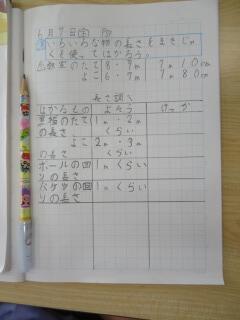 6月7日(金)
いろいろな物の長さをまきじゃ
くを使ってはかろう。
教室のたて 8・9m 7m10cm
よこ 6・7m 7m80cm
長さ調べ
はかるもの よそう けっか
黒板のたて の長さ 1m・2m くらい
よこ の長さ 2m・3m くらい
ボールの回 1mくらい
りの長さ
バケツの回 1mくらい
りの長さ